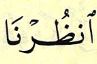 ٱنظُرْنَا